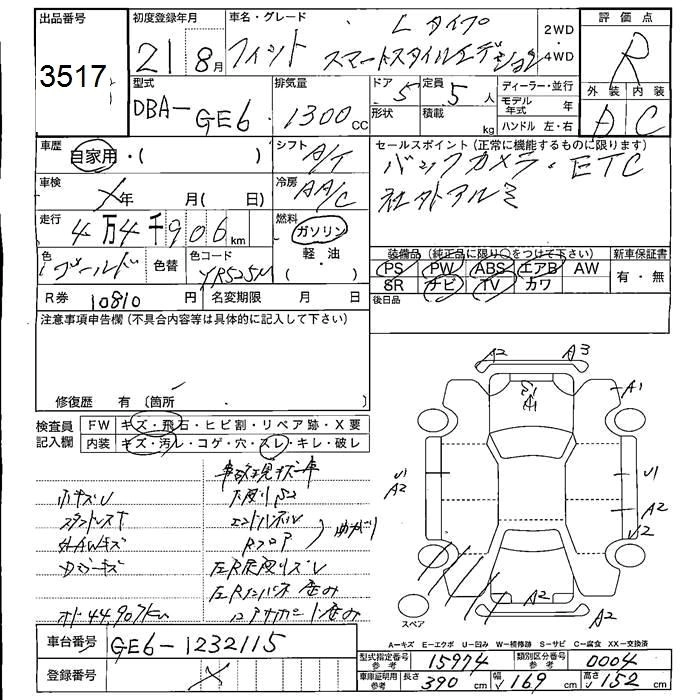 出品番号
3517
初度登録年月
21 8月
車名・グレード
フィット
Lタイプ
スマートスタイルエディション
2WD
4WD
評価点
R
外装 内装
A C
型式
DBA-GE6
排気量
1300cc
ドア形状
5
定員
5人
積載
kg
ディーラー・並行
モデル年式 年
ハンドル 左・右
車歴
自家用・( )
シフト
A/T
車検
X年 月(日)
冷房
AA/C
走行
4万4千906km
燃料
ガソリン
軽・油
( )
色
ゴールド
色替
色コード
YR525M
R券 10810円
名変期限 月 日
セールスポイント(正常に機能するものに限ります)
バックカメラ・ETC
社外アルミ
装備品(純正品に限り○をつけて下さい)
新車保証書
PS PW ABS エアB AW
SR ナビ TV カワ
有・無
後日品
注意事項申告欄(不具合内容等は具体的に記入して下さい)
修復歴 有〔箇所 〕
検査員記入欄
FW キズ・飛石・ヒビ割・リペア跡・X要
内装 キズ・汚レ・コゲ・穴・スレ・キレ・破レ
小キズU
外AWキズ
エンドパネル
Rフロア
オド44,907km
A2 A3
A1
A1
U1
A2
U1
A2
U2
A2
A2
スペア
A-キズ E-エクボ U-凹み W-補修跡 S-サビ C-腐食 XX-交換済
車台番号
GE6-1232115
登録番号
X
型式指定番号 参考
15974
類別区分番号 参考
0004
車庫証明用 参考
長さ 390cm
幅 169cm
高さ 152cm